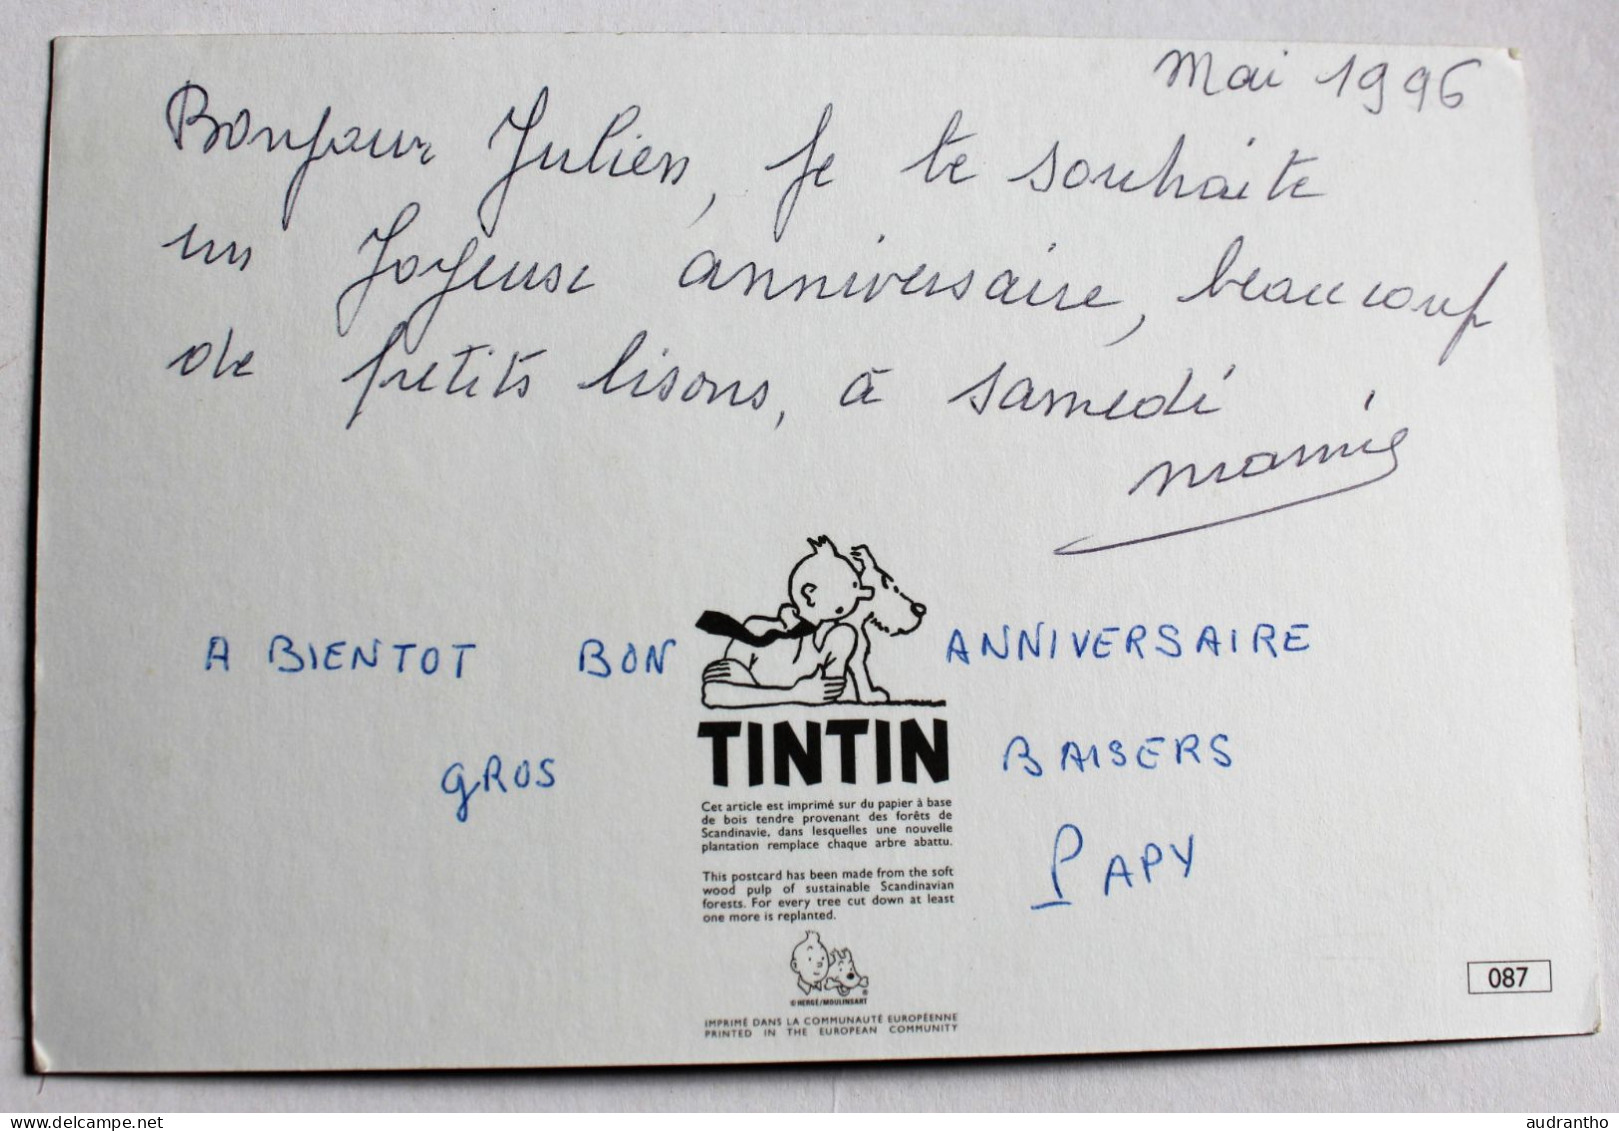 Mai 1996
Bonjour Julien, je te souhaite
un Joyeuse anniversaire, beaucoup
de petits bisous, à samedi
mamie
A BIENTOT BON ANNIVERSAIRE
GROS BAISERS
PAPY
TINTIN
Cet article est imprimé sur du papier à base
de bois tendre provenant des forêts de
Scandinavie, dans lesquelles une nouvelle
plantation remplace chaque arbre abattu.
This postcard has been made from the soft
wood pulp of sustainable Scandinavian
forests. For every tree cut down at least
one more is replanted.
© HERGÉ/MOULINSART
IMPRIMÉ DANS LA COMMUNAUTÉ EUROPÉENNE
PRINTED IN THE EUROPEAN COMMUNITY
087
audrantho